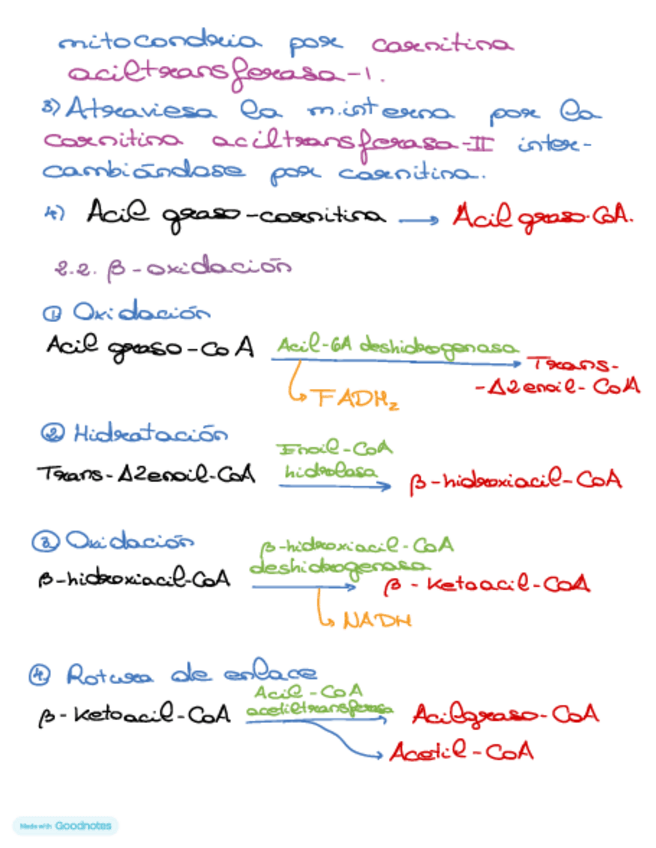 mitocondria por carnitina
aciltransferasa-1.
3) Atraviesa la m.interna por la
carnitina aciltransferasa-II inter-
cambiándose por carnitina.
4) Acil graso-carnitina → Acil graso-CoA.
2.2. β-oxidación
① Oxidación
Acil graso-CoA Acil-CoA deshidrogenasa Trans-
-Δ2enoil-CoA
FADH₂
② Hidratación
Enoil-CoA
Trans-Δ2enoil-CoA hidrolasa β-hidroxiacil-CoA
③ Oxidación
β-hidroxiacil-CoA
deshidrogenasa
β-hidroxiacil-CoA β-Ketoacil-CoA
NADH
④ Rotura de enlace
Acil-CoA
acetiltransferasa
β-Ketoacil-CoA Acilgraso-CoA
Acetil-CoA
Made with Goodnotes